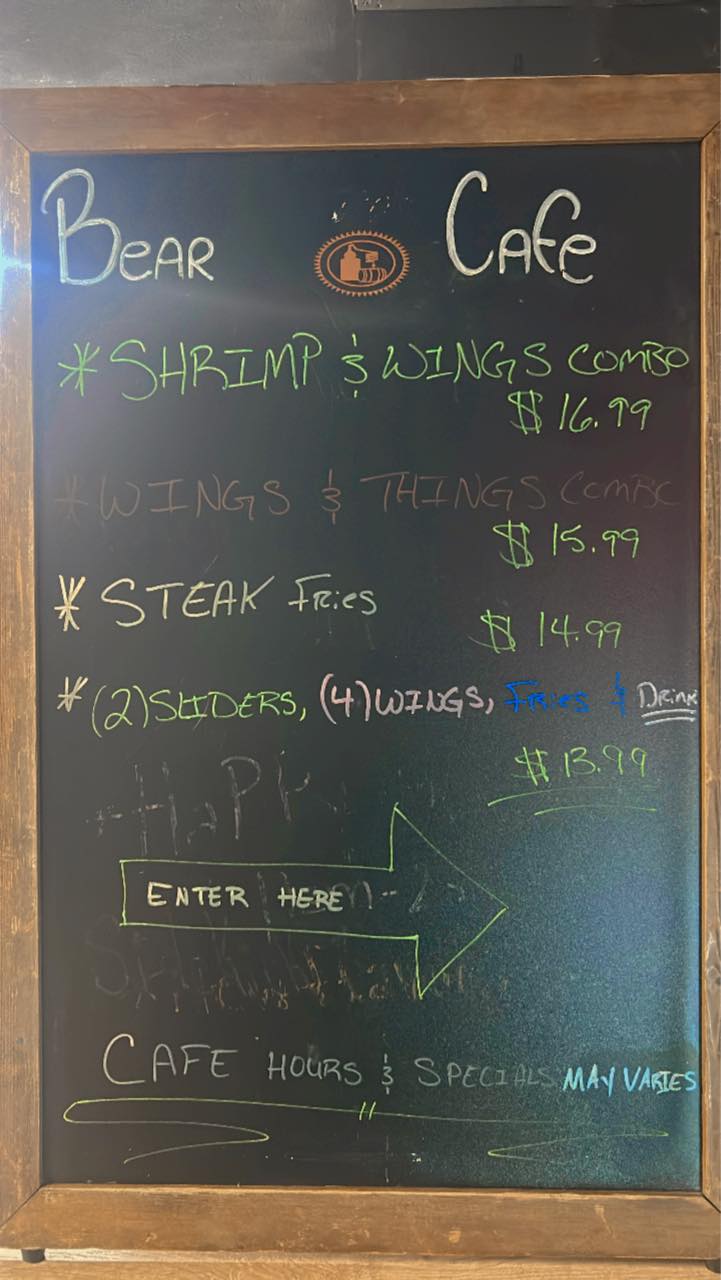 BEAR CAFE
* SHRIMP & WINGS COMBO
$ 16.99
* WINGS & THINGS COMBO
$ 15.99
* STEAK FRIES
$ 14.99
* (2) SLIDERS, (4) WINGS, FRIES & DRINK
$ 13.99
ENTER HERE
CAFE HOURS & SPECIALS MAY VARIES